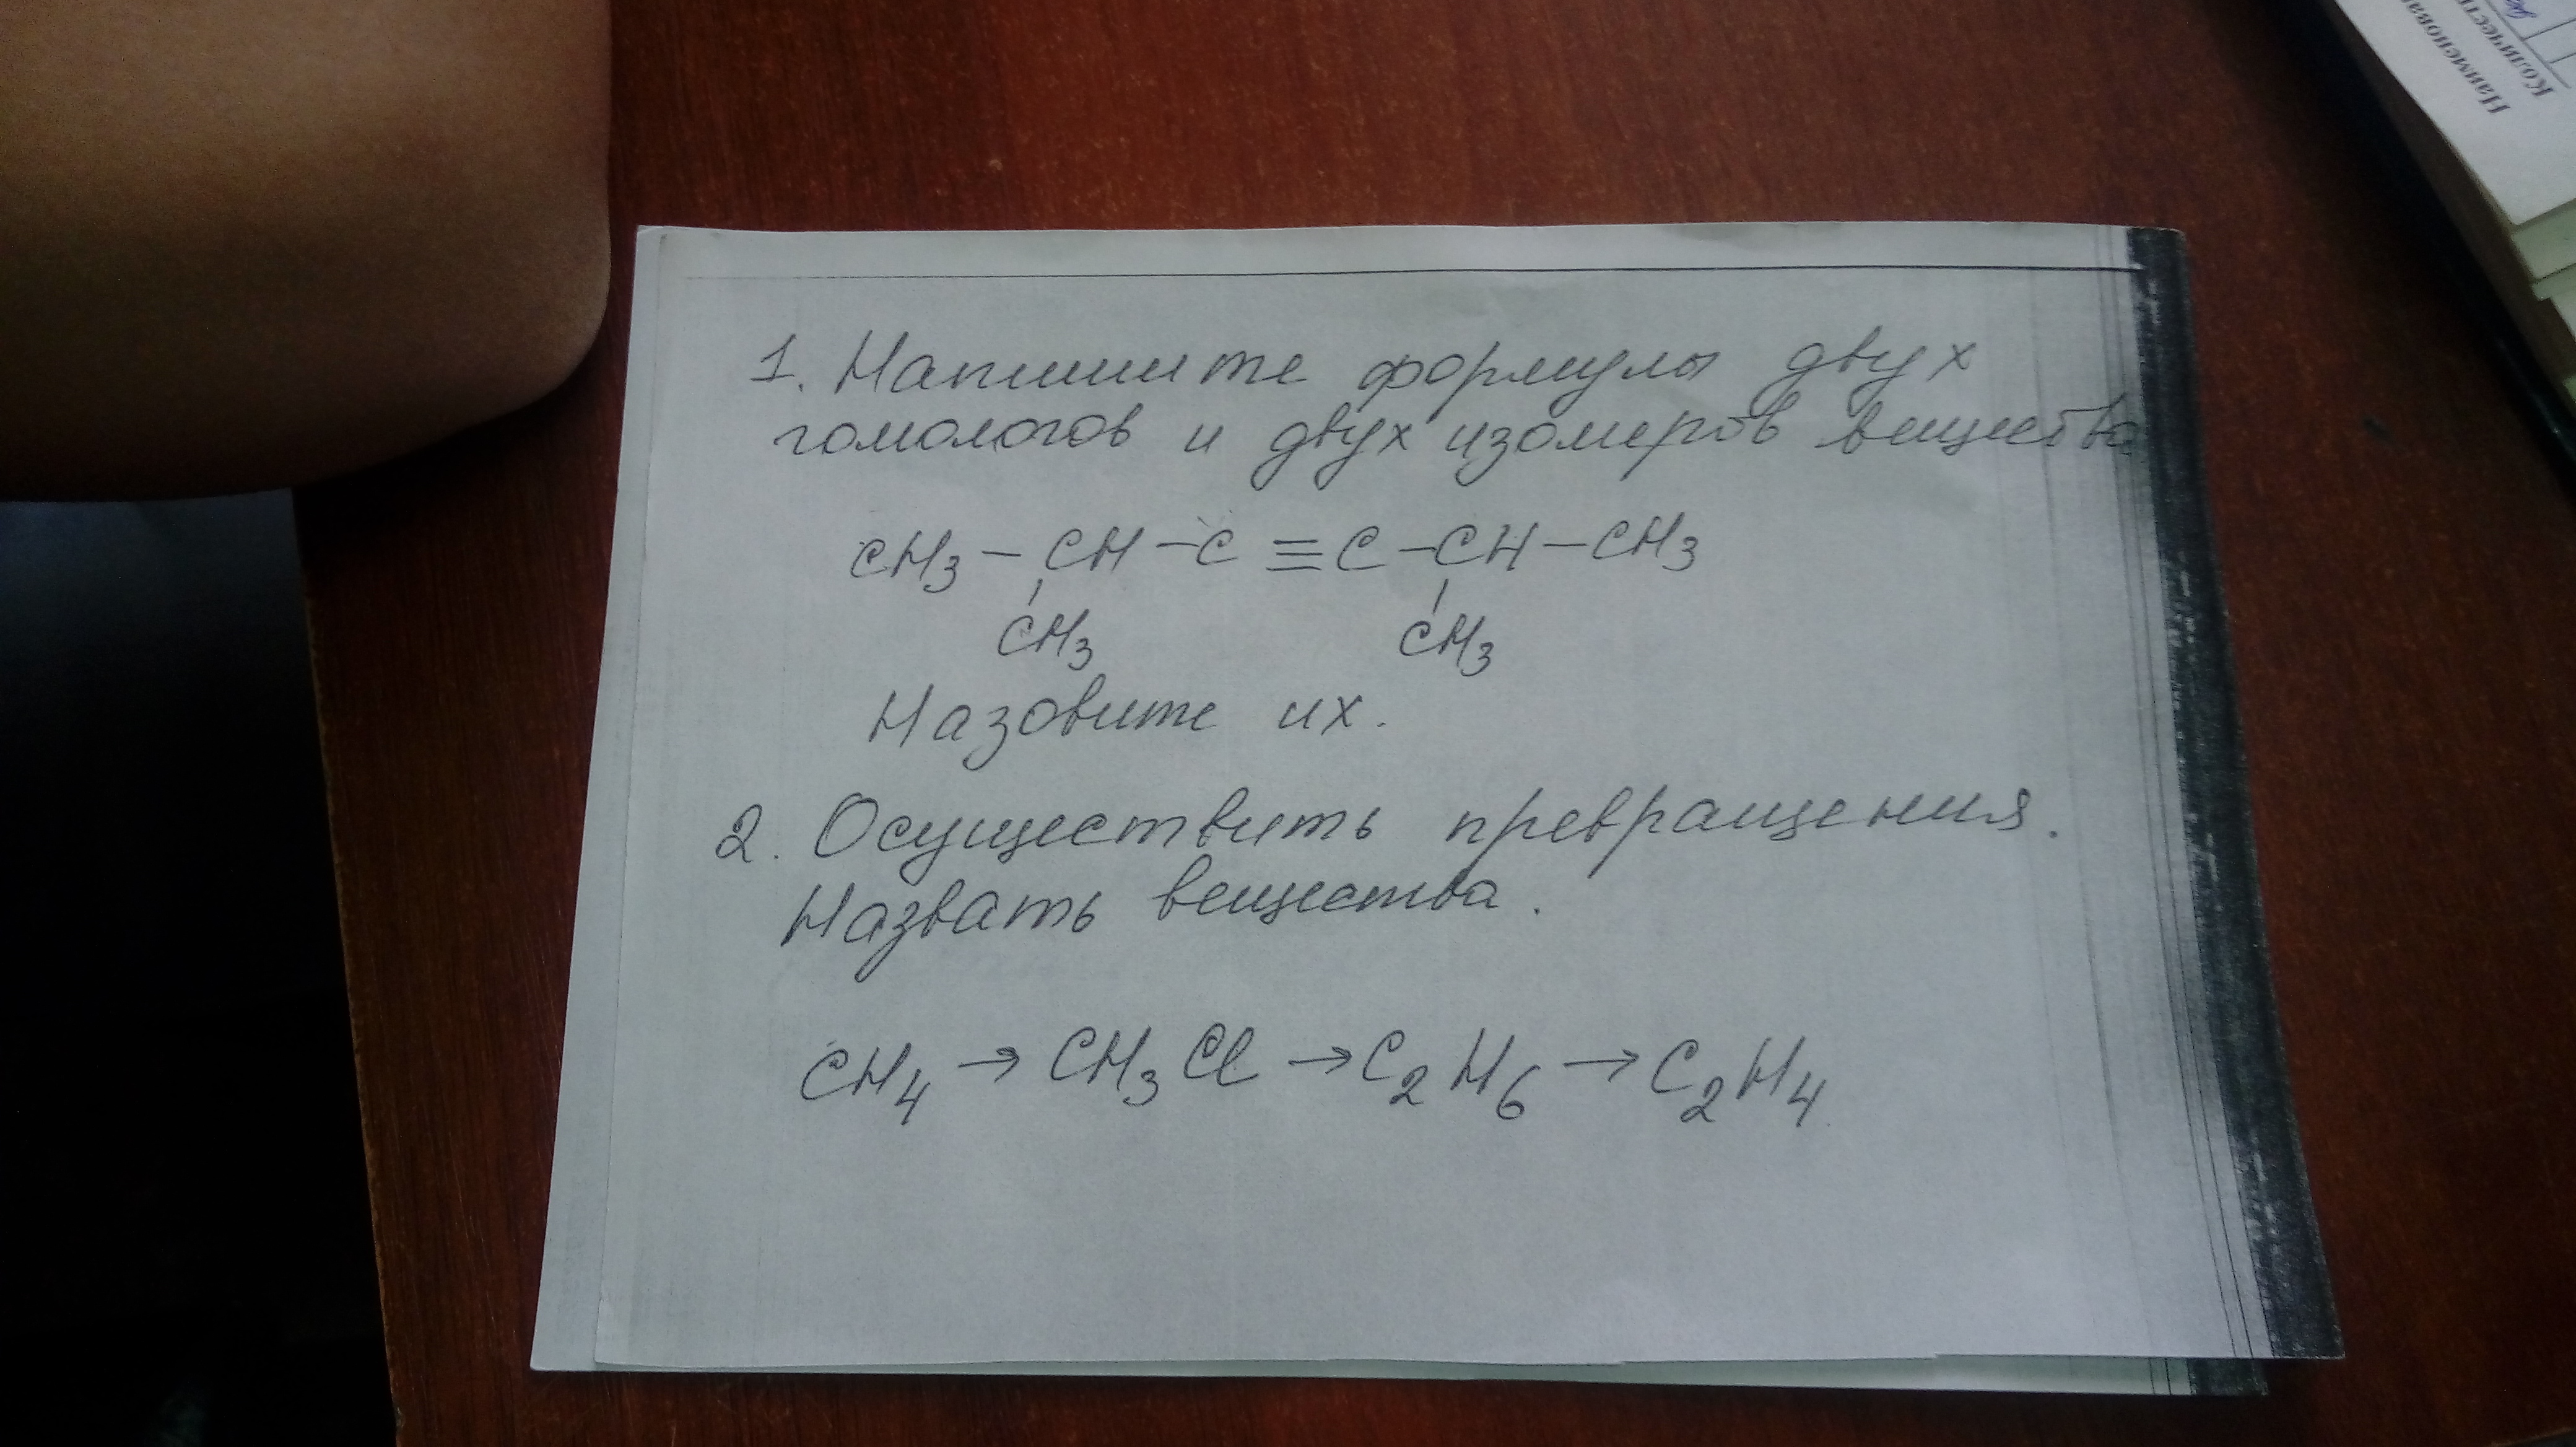 1. Напишите формулы двух
гомологов и двух изомеров вещества
CH₃ – CH – C ≡ C – CH – CH₃
CH₃ CH₃
Назовите их.
2. Осуществить превращения.
Назвать вещества.
CH₄ → CH₃Cl → C₂H₆ → C₂H₄